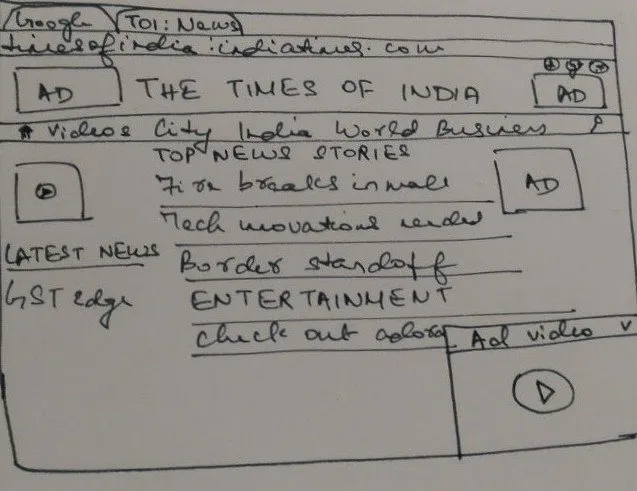 Google TOI: News
timesofindia.indiatimes.com
AD THE TIMES OF INDIA AD
Videos City India World Business
TOP NEWS STORIES
Fire breaks in mall
AD
Tech
LATEST NEWS
Border standoff
GST edge
ENTERTAINMENT
Check out
Ad video v